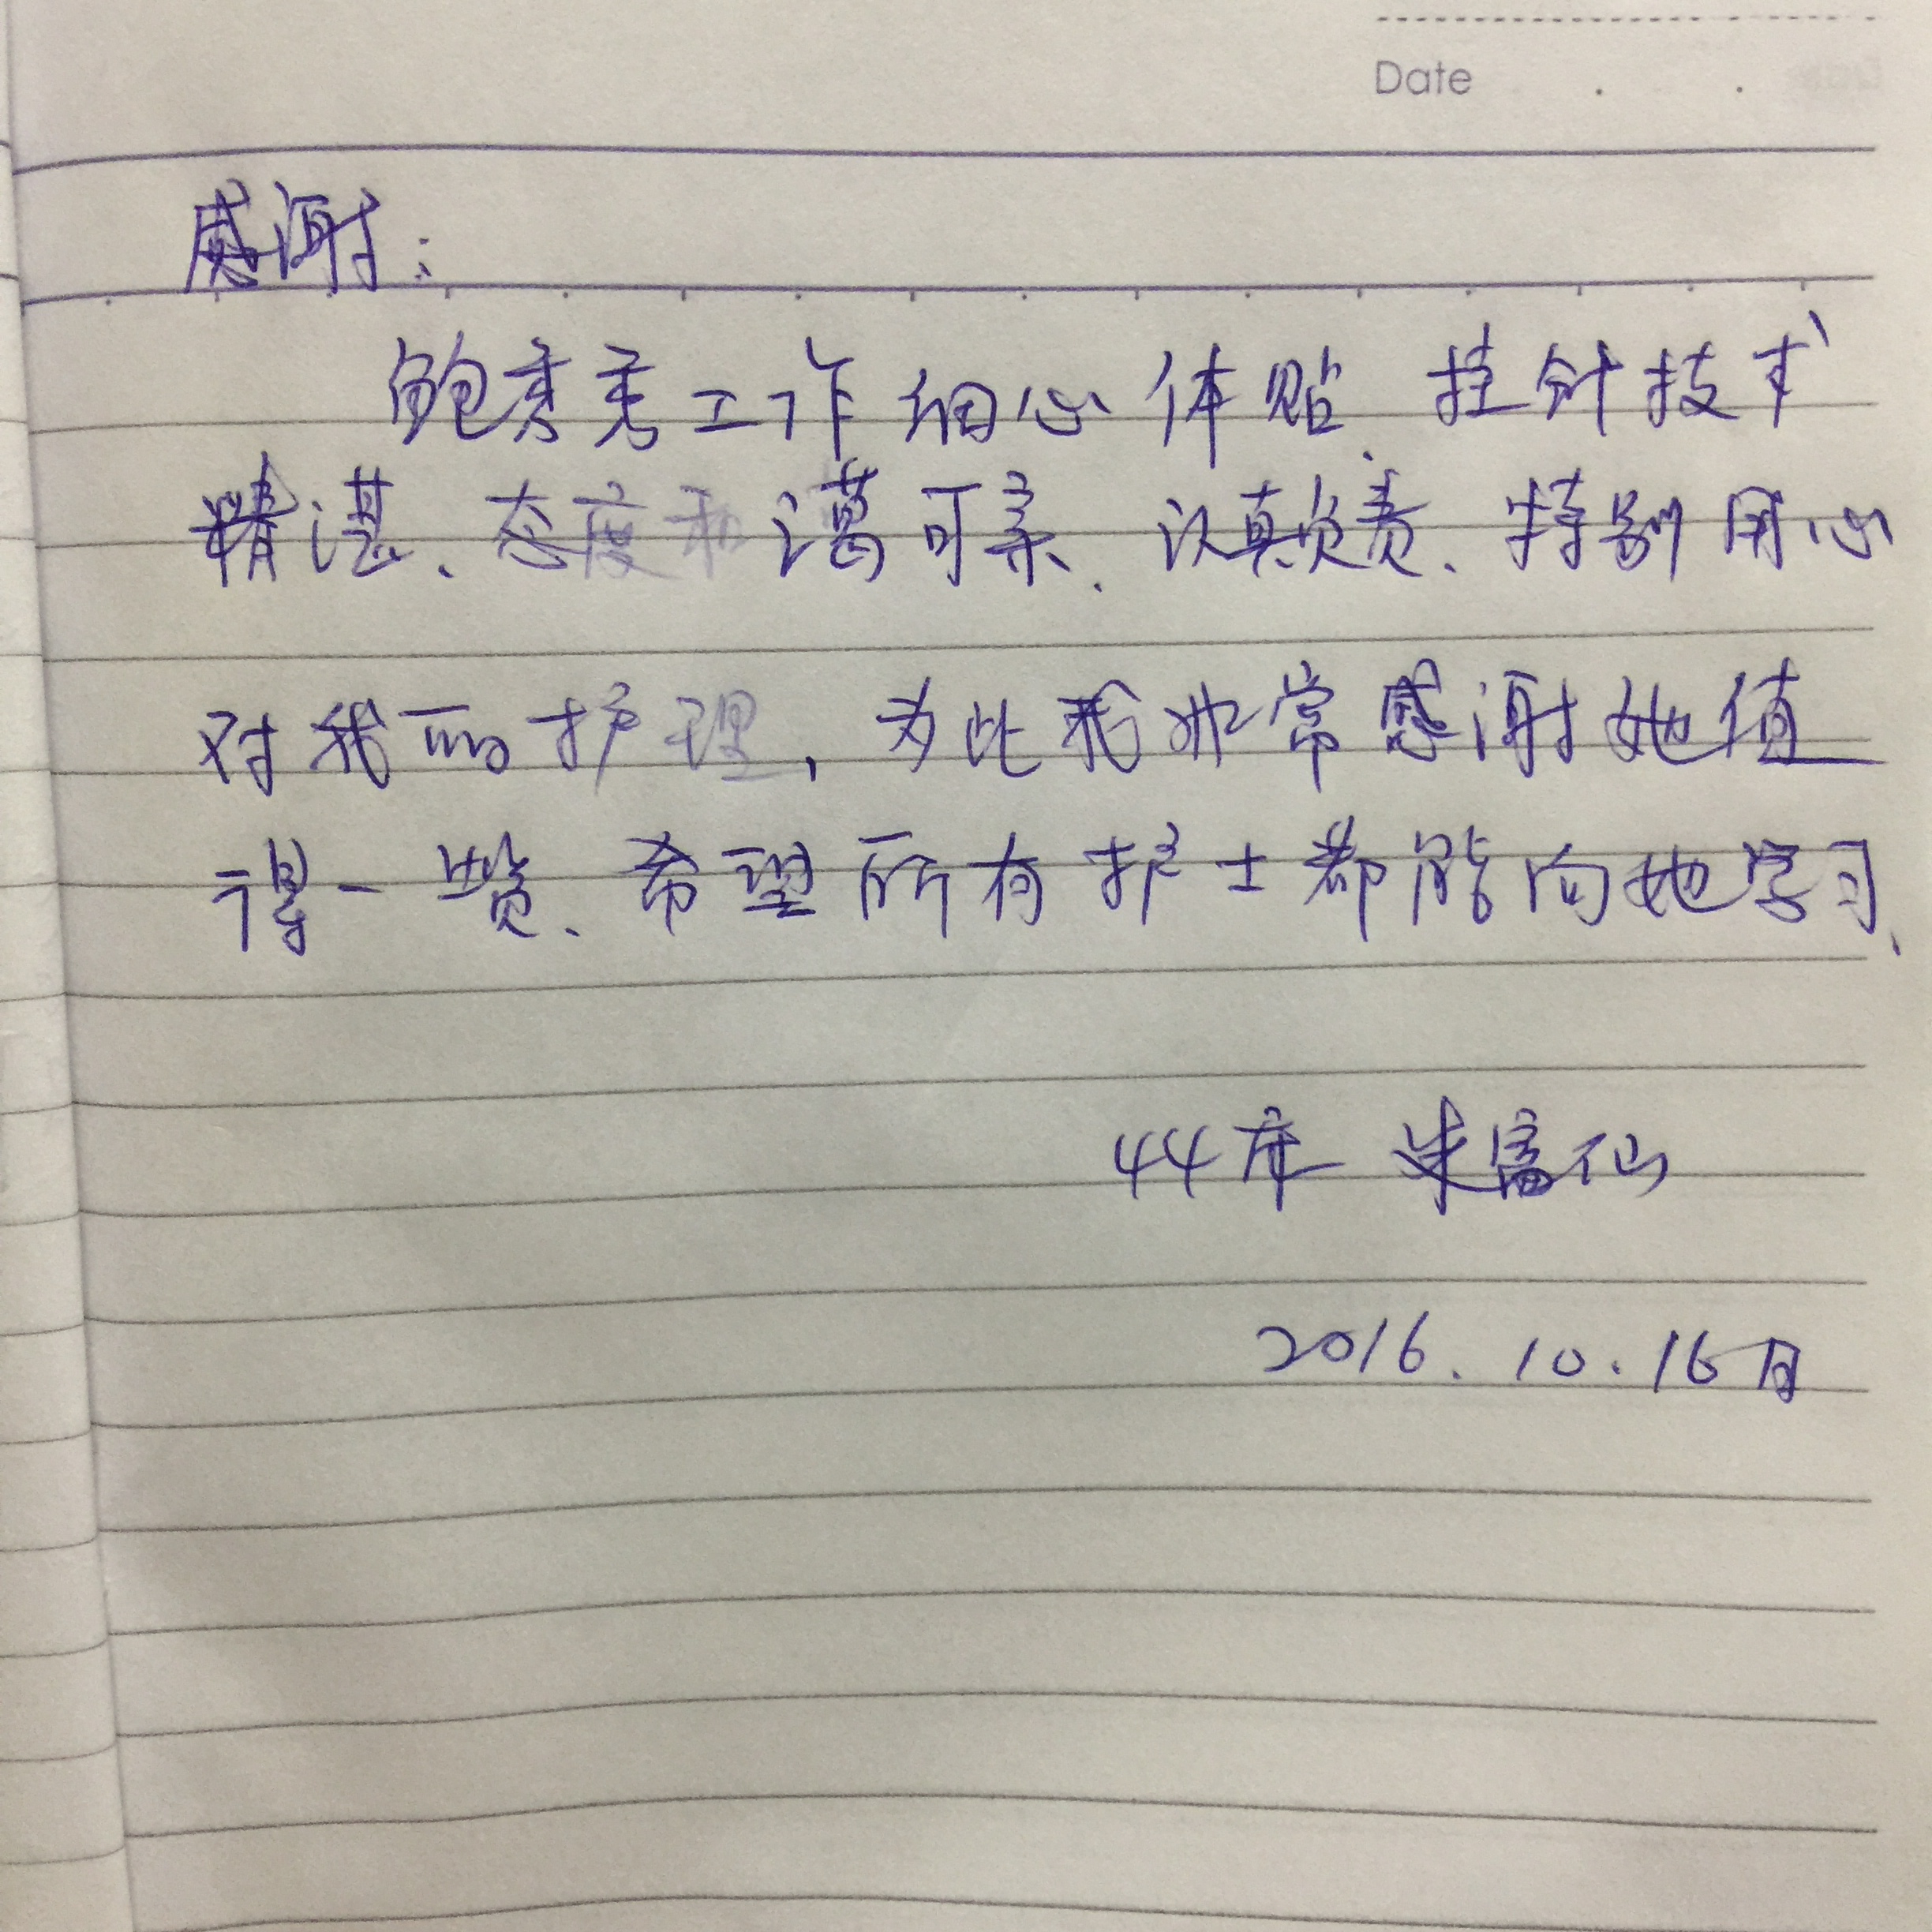 Date . .
感谢:
鲍秀秀工作细心体贴、挂针技术
精湛、态度和蔼可亲、认真负责、特别用心
对我的护理,为此我非常感谢她值
得一赞、希望所有护士都能向她学习、
44床 朱富仙
2016.10.16日